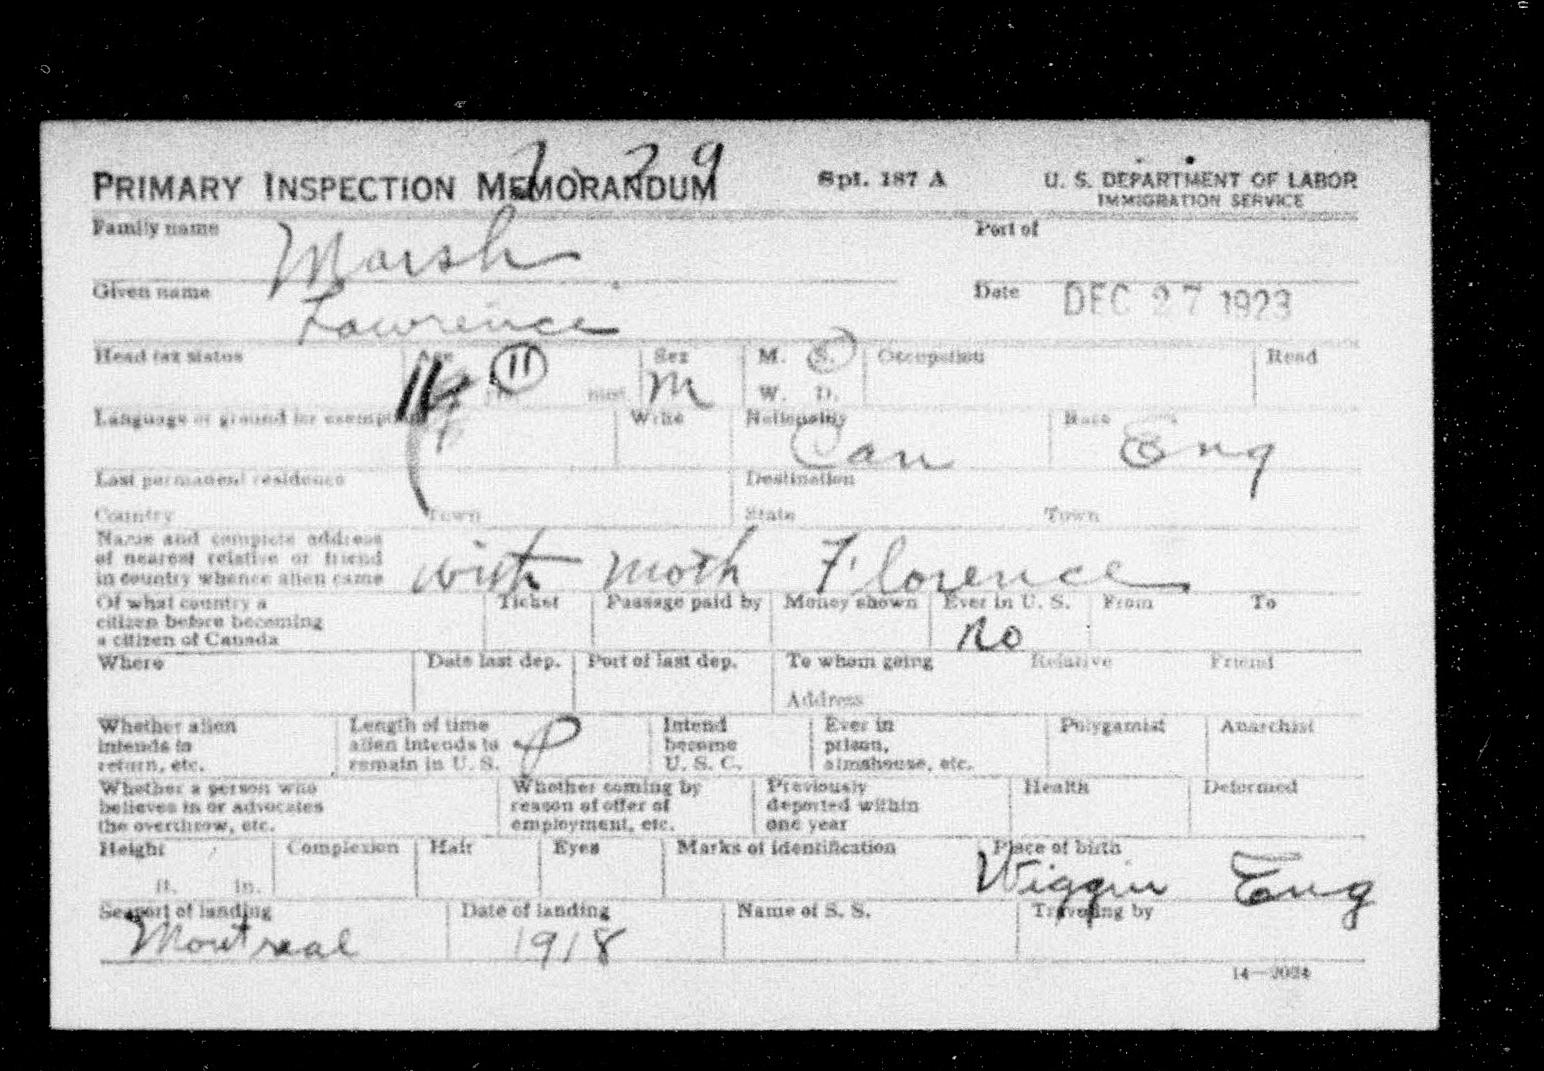 2 29
PRIMARY INSPECTION MEMORANDUM Spl. 187 A U. S. DEPARTMENT OF LABOR
IMMIGRATION SERVICE
Family name Marsh Port of
Given name Lawrence Date DEC 27 1923
Head tax status Age 11 Sex M M. S. Occupation Read
W. D.
Language or ground for exemption Write Nationality Can Race Eng
Last permanent residence Destination
Country Town State Town
Name and complete address
of nearest relative or friend
in country whence alien came with moth Florence
Of what country a Ticket Passage paid by Money shown Ever in U. S. From To
citizen before becoming
a citizen of Canada No
Where Date last dep. Port of last dep. To whom going Relative Friend
Address
Whether alien Length of time Intend Ever in Polygamist Anarchist
intends to alien intends to P become prison,
return, etc. remain in U. S. U. S. C. almshouse, etc.
Whether a person who Whether coming by Previously Health Deformed
believes in or advocates reason of offer of deported within
the overthrow, etc. employment, etc. one year
Height Complexion Hair Eyes Marks of identification Place of birth
ft. in. Wiggin Eng
Seaport of landing Date of landing Name of S. S. Traveling by
Montreal 1918
14—2024